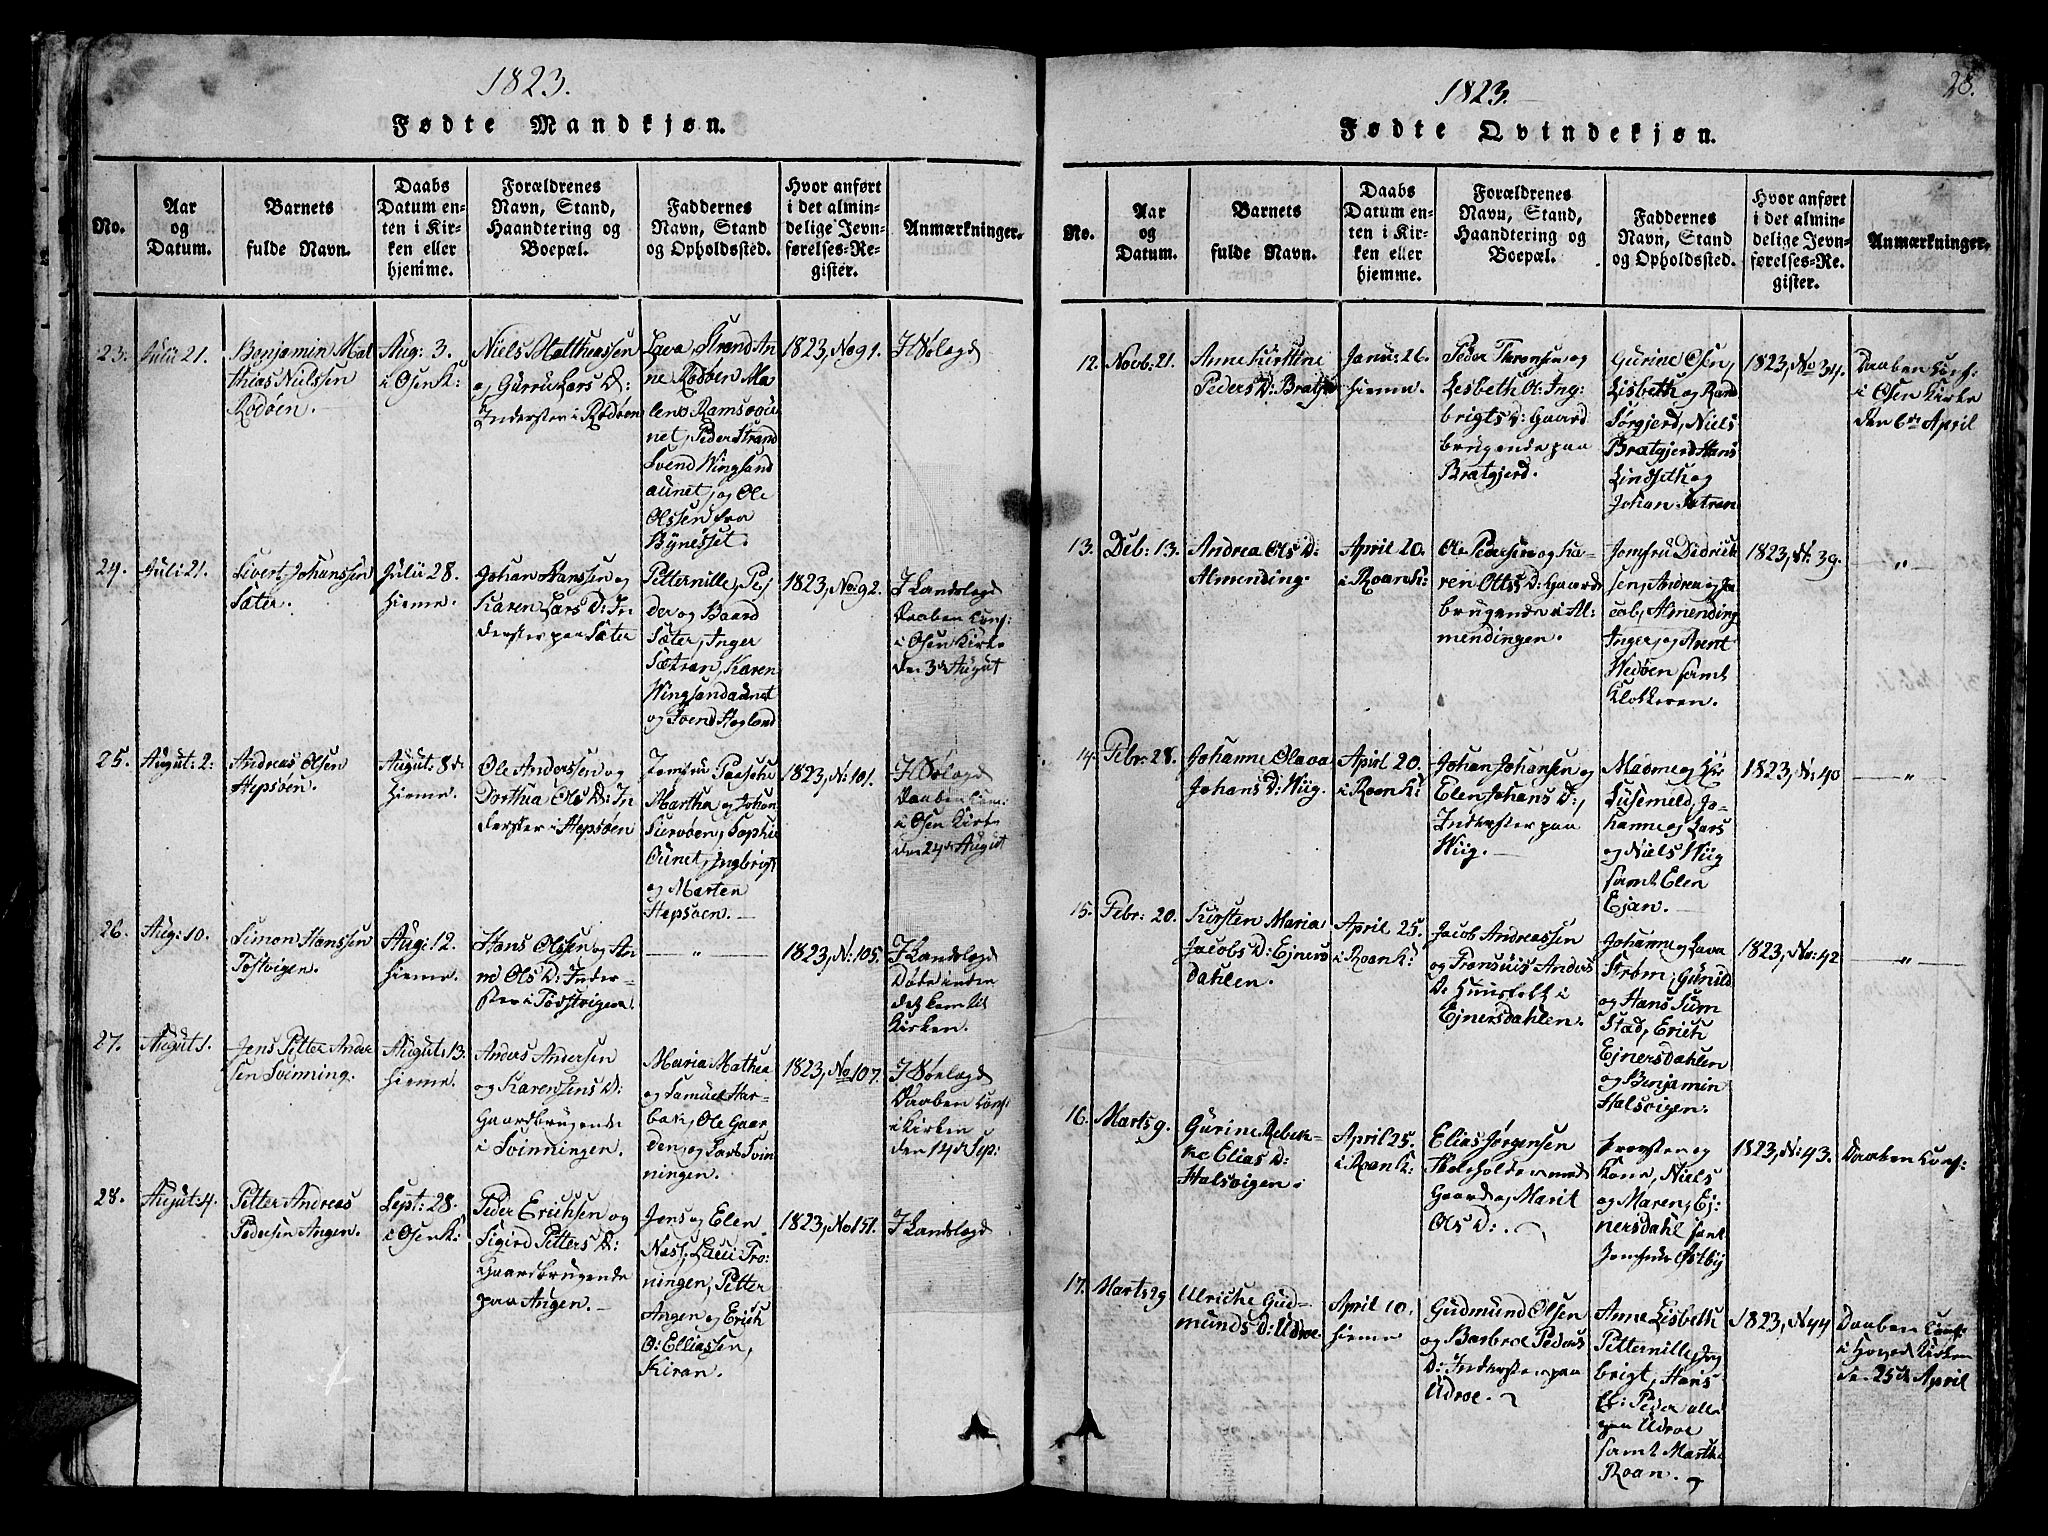 1823.
Fødte Mandkjøn.
No.
Aar
og
Datum.
Barnets
fulde Navn.
Daabs
Datum en-
ten i Kir-
ken eller
hjemme.
Forældrenes
Navn, Stand,
Haandtering og
Boepæl.
Faddernes
Navn, Stand
og Opholdssted.
Hvor anført
i det almin-
delige Jevn-
førelses-Re-
gister.
Anmærkninger.
23.
Julii 21.
Benjamin Mat
thias Nielssen
Rodøen.
Aug: 3.
i Osen K:
Niels Matthiassen
og Gurru Lars D:
Inderster i Rodøen
Lava, Strand An-
ne Rodøen Ma
lene Ramsøeau
net, Peder Strand
Svend Wingsand
aunet, og Ole
Olssen fra
Bynesset.
1823, No 91.
I Sølagd
24.
Juli 21.
Sivert Johanssen
Sæter.
Julii 28.
hieme.
Johan Hanssen og
Karen Lars D: In-
derster paa Sæter
Petternille, Pe
der og Baard
Sæter, Inger
Sætran, Karen
Wingsandaunet
og Svend Hegland
1823, No: 92.
I Landlagd
Daaben Conf:
i Osen Kirke
den 3d August
25.
August: 2:
Andreas Olsen
Hepsøen.
August: 8d
hieme.
Ole Anderssen og
Dorthea Ols D: In
derster i Hepsøen
Jomfru Paasche
Martha og Johan
Siervøen, Sophie
Ounet, Ingbrigt
og Marten
Hepsøen.
1823, N: 101.
I Sølagd
Daaben Conf:
i Osen Kirke
den 24d August
26.
Aug: 10.
Simon Hanssen
Tostvigen.
Aug: 12.
hieme.
Hans Olssen og An-
ne Ols D: Inder-
ster i Tostvigen.
— " —
1823, N: 105.
I Landlagd
Døde inden
det kom til
Kirken.
27.
August 1.
Jens Petter Ander
sen Svinning.
August: 13.
hieme.
Anders Andersen
og Karen Jens D:
Gaardbrugende
i Svinningen.
Maria Mathea
og Samuel Har-
bak, Ole Gaar
den, og Lars Svin
ningen.
1823, No 107.
I Sølagd
Daaben Conf:
i Kirken
den 14d Sep:
28.
August: 4.
Petter Andreas
Pedersen Angen.
Sept: 28.
i Osen K:
Peder Erichsen og
Sigird Petters D:
Gaardbrugende
paa Angen.
Jens og Elen
Næss, Lucie Pro:
ningen, Petter
Angen og Erich
O: Elliassen,
Kiran.
1823, No 151.
I Landlagd
1823.
28.
Fødte Qvindekjøn.
No.
Aar
og
Datum.
Barnets
fulde Navn.
Daabs
Datum en-
ten i Kir-
ken eller
hjemme.
Forældrenes
Navn, Stand,
Haandtering og
Boepæl.
Faddernes
Navn, Stand
og Opholdssted.
Hvor anført
i det almin-
delige Jevn-
førelses-Re-
gister.
Anmærkninger.
12.
Novb: 21.
Anne Kirstine
Peders D: Bratgi
Janu: 26.
hieme.
Peder Thronsen og
Lisbeth Ol: Ing
brigts D: Gaard
brugende paa
Bratgjerd.
Gurine Osen,
Lisbeth og Rand
Sørgjerd, Niels
Bratgjerd, Hans
Lindseth og
Johan Sætran
1823, No 34.
Daaben Conf.
i Osen Kirke
den 6te April
13.
Deb: 13.
Andrea Ols D:
Almending.
April 20.
i Roan K:
Ole Pedersen og Ka-
ren Otts D: Gaard
brugende i Al:
mendingen.
Jomfru Didrick
sen, Andrea og Ja
cob, Almending
Inger, og Arent
Wedøen samt
Klokkeren.
1823, N: 39.
— " —
14.
Febr: 28.
Johanne Olava
Johans D: Wiig.
April 20.
i Roan K:
Johan Johansen og
Elen Johans D:,
Inderster paa
Wiig.
Madme og Hr
Susemeld, Jo-
hanne og Lars
og Niels Wiig
samt Elen
Ejan.
1823, N: 40
— " —
15.
Febr: 20.
Kirsten Maria
Jacobs D: Ejners
dahlen.
April 25.
i Roan K:
Jacob Andreassen
og Fransuis Anders
D: Huusfolk i
Ejnersdahlen.
Johanne og Lava
Strøm, Gunild
og Hans Sum
stad, Erich
Ejnersdahlen
og Benjamin
Halsvigen.
1823, No: 42
— " —
16.
Marts 9.
Gurine Rebek-
ke Elias D:
Halsvigen.
April 25.
i Roan K:
Elias Jørgensen
Selveholder med
Gaard og Marit
Ols D:
Provsten og
Kone, Niels
og Maren, Ej:
nersdahl samt
Jomfrue Østby
1823, N: 43.
Daaben Conf:
17.
Marts 29
Ulriche Gud-
munds D: Udroe.
April 10.
hieme
Gudmund Olsen
og Barbroe Peders
D: Inderster paa
Udroe.
Anne Lisbeth
Petternille, Ing
brigt, Hans
Er: Peder alle
paa Udroe
samt Marthe
Roan.
1823, No 44
Daaben Conf:
i Hoved Kirken
den 25de April